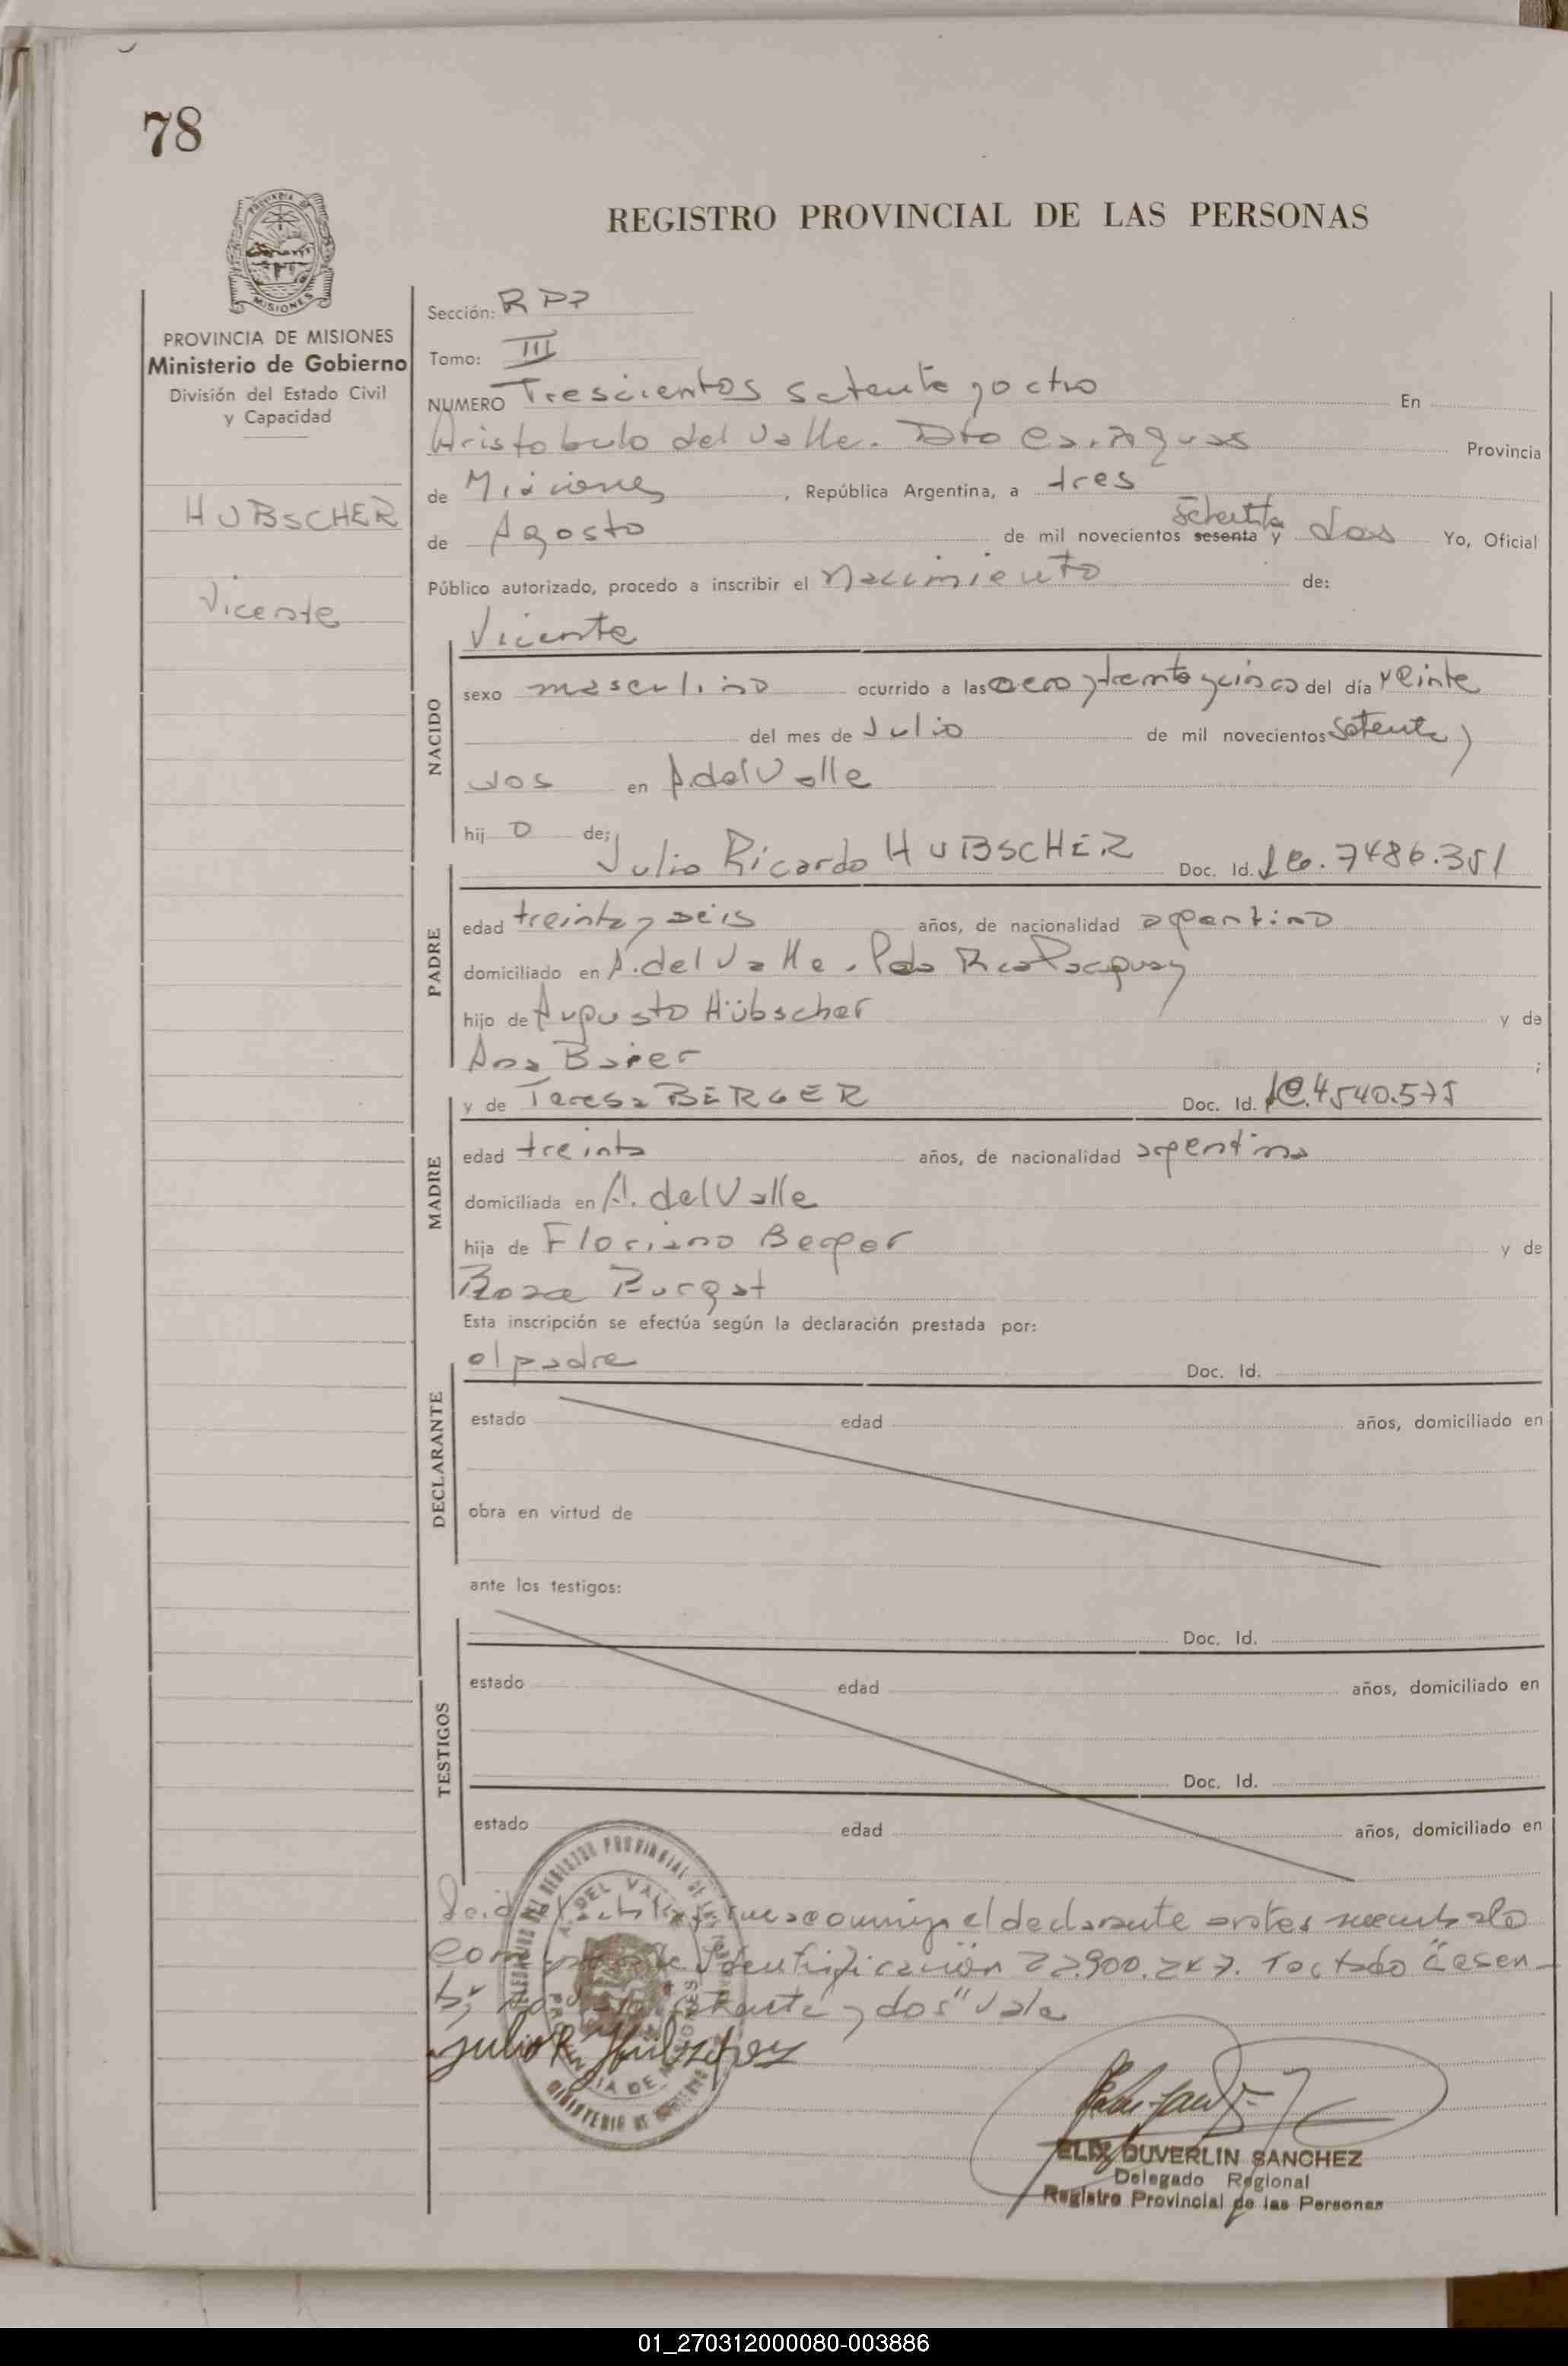 78
REGISTRO PROVINCIAL DE LAS PERSONAS
PROVINCIA DE MISIONES
Ministerio de Gobierno
División del Estado Civil
y Capacidad
HUBSCHER
Vicente
Sección: RPP
Tomo: III
NUMERO Trescientos setenta y octo En
Aristobulo del Valle. Dto Provincia
de Misiones, República Argentina, a tres
de Agosto de mil novecientos sesenta y setenta dos Yo, Oficial
Público autorizado, procedo a inscribir el nacimiento de:
Vicente
NACIDO
sexo masculino ocurrido a las cero y treinta y cinco del día veinte
del mes de Julio de mil novecientos setenta y
dos en A. del Valle
hij o de:
Julio Ricardo HUBSCHER Doc. Id. 7486.351
PADRE
edad treinta y seis años, de nacionalidad argentino
domiciliado en A. del Valle.
hijo de Augusto Hübscher y de
Ana Baier ;
y de Teresa BERGER Doc. Id. 4540.575
MADRE
edad treinta años, de nacionalidad argentina
domiciliada en A. del Valle
hija de Floriano Berger y de
Rosa Burgat
Esta inscripción se efectúa según la declaración prestada por:
el padre Doc. Id.
DECLARANTE
estado edad años, domiciliado en
obra en virtud de
ante los testigos:
Doc. Id.
TESTIGOS
estado edad años, domiciliado en
Doc. Id.
estado edad años, domiciliado en
el declarante
Identificación Testado
setenta y dos" Vale
Julio R Hübscher
ELIX DUVERLIN SANCHEZ
Delegado Regional
Registro Provincial de las Personas
01_270312000080-003886